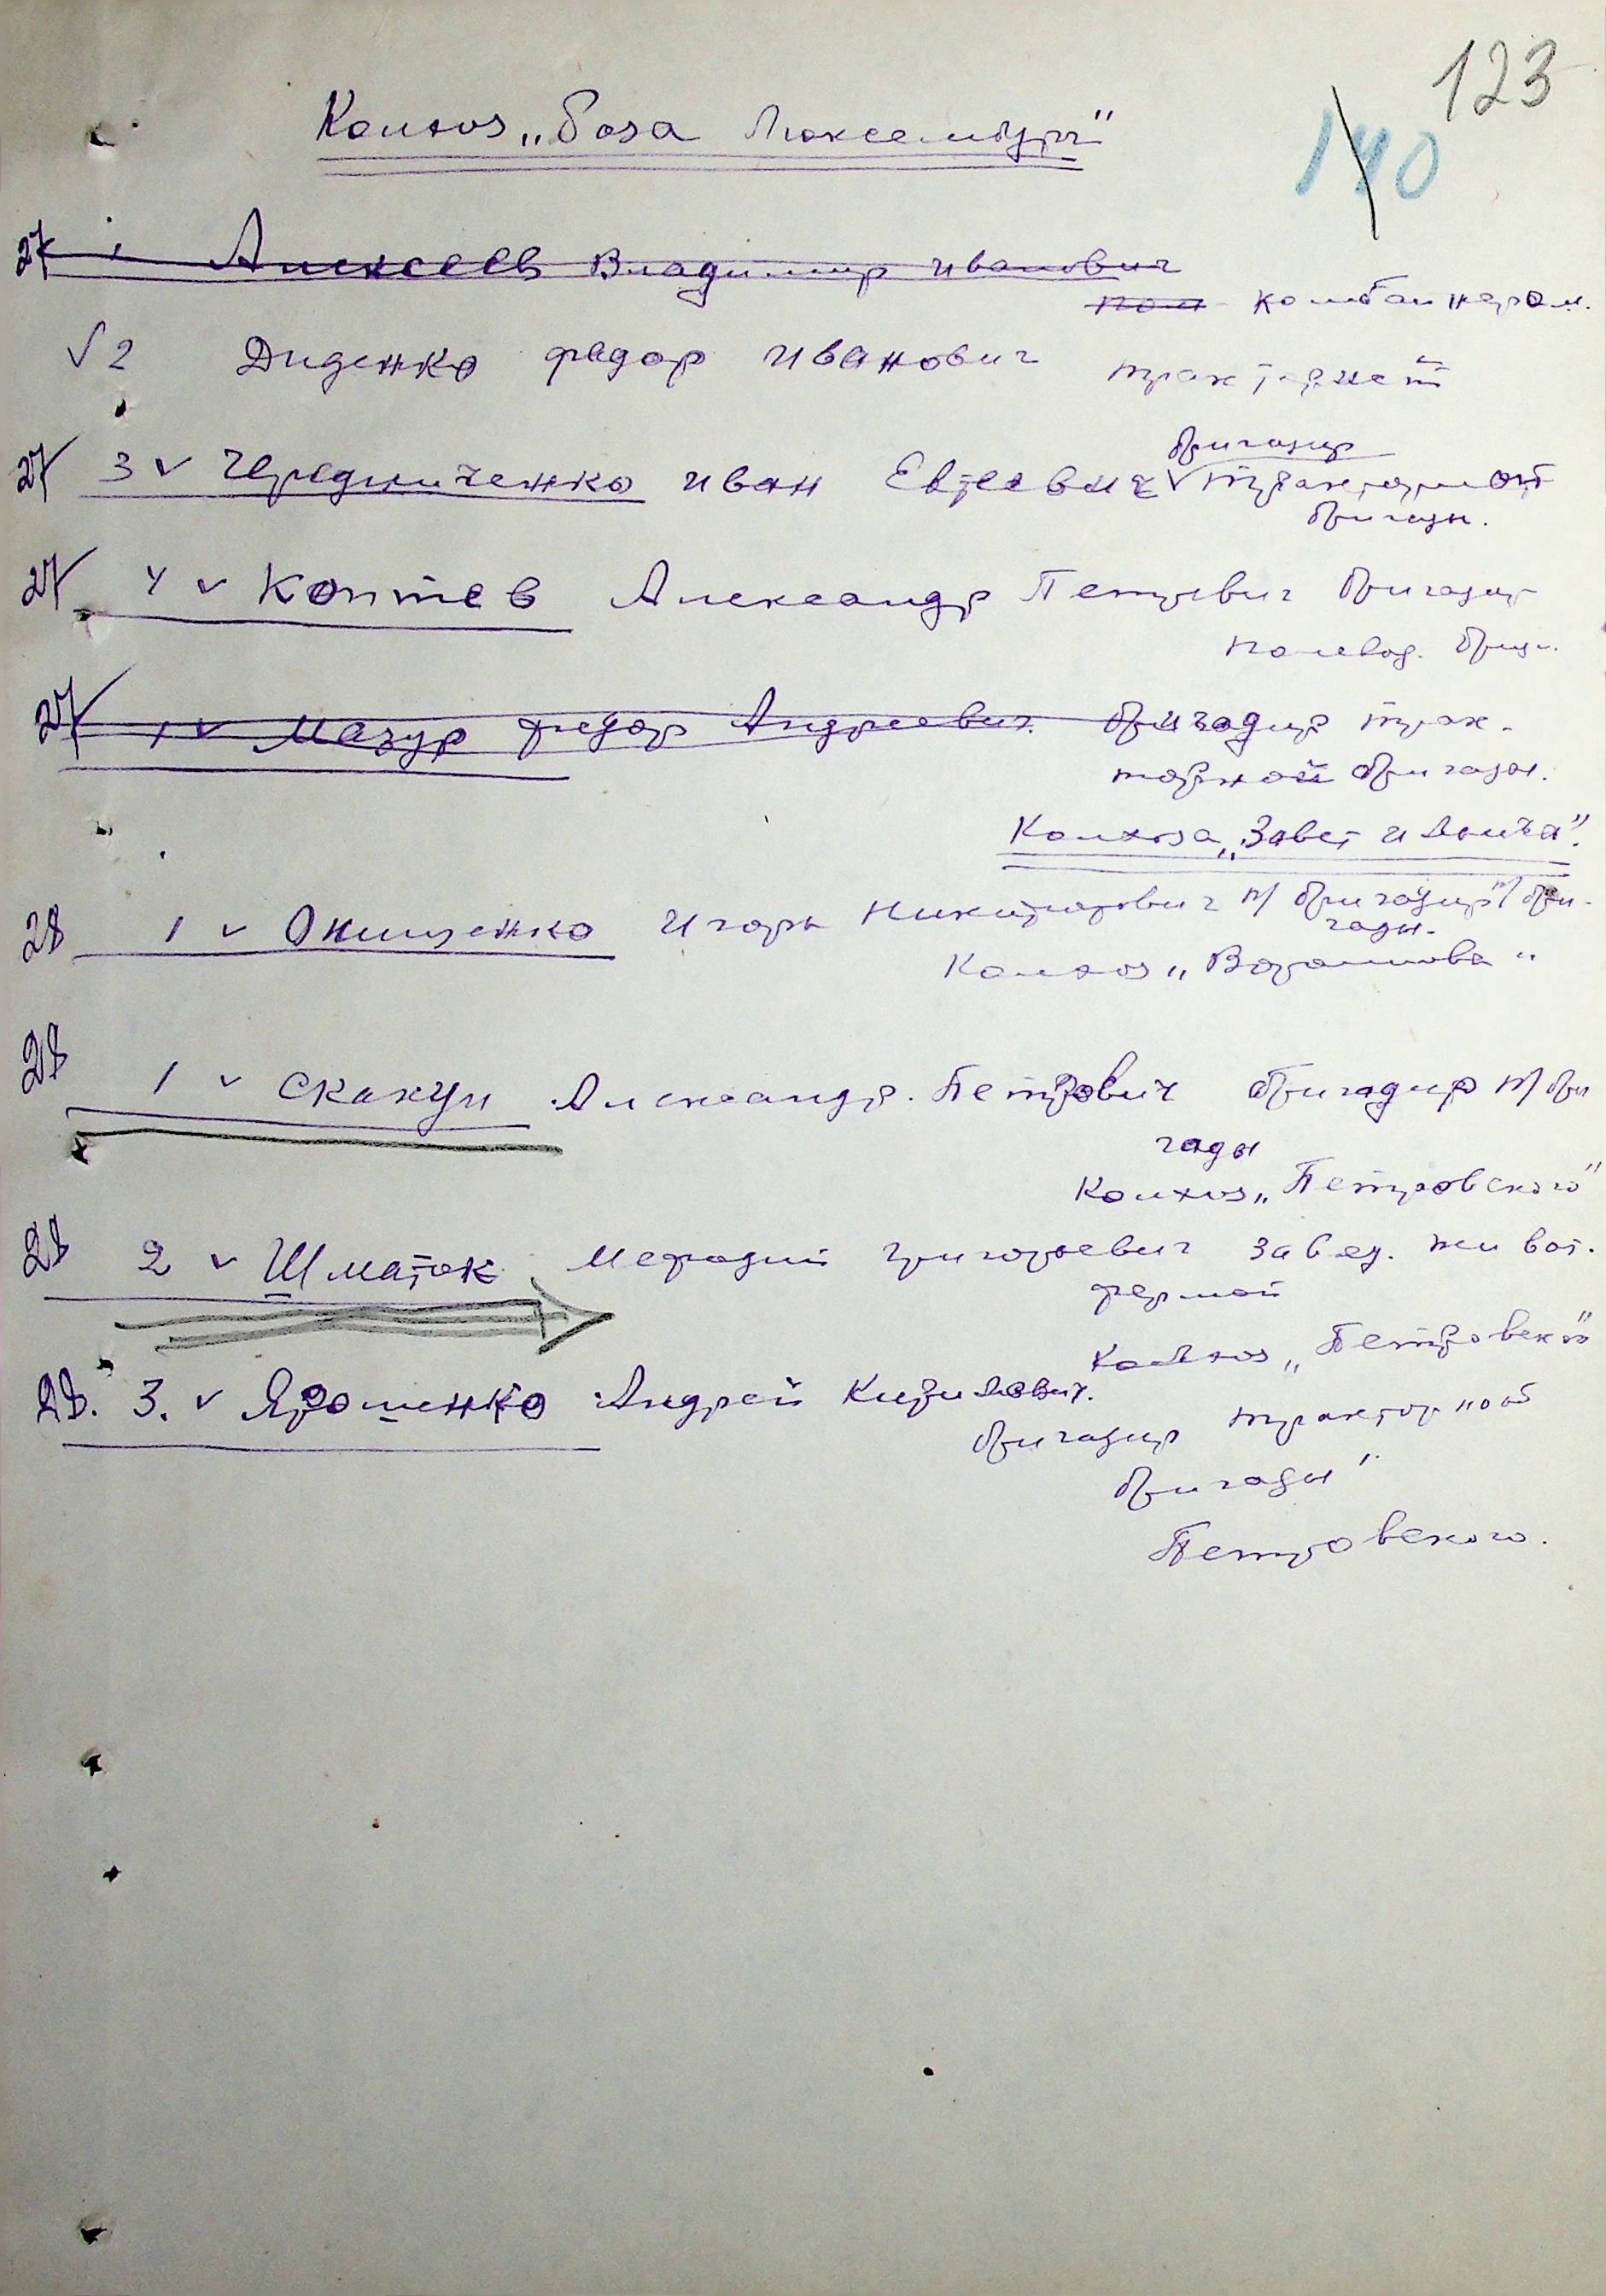 123
140
Колхоз „Роза Люксембург"
27 1 Алексеев Владимир Иванович
пом комбайнером.
√ 2 Диденко Федор Иванович тракторист
бригадир
27 3 √ Чередниченко Иван Евтеевич √ тракторной
бригады.
27 4 √ Коптев Александр Петрович бригадир
полевод. бриг.
27 1 √ Мазур Федор Андреевич бригадир трак-
торной бригады.
Колхоза „Завет Ильича".
28 1 √ Онищенко Игорь Никифорович п/ бригадир т/ бри-
гады.
Колхоз „Ворошилова"
28 1 √ Скакун Александр Петрович бригадир т/ бри
гады
Колхоз „Петровского"
28 2 √ Шматок Мефодий Григорьевич завед. живот.
фермой
Колхоз „Петровского"
28. 3. √ Ярошенко Андрей Кирилович.
бригадир тракторной
бригады
Петровского.